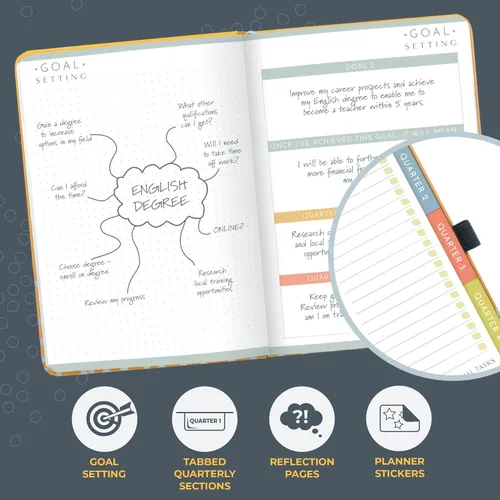 •GOAL•
SETTING
Gain a degree
to increase
options in my field
What other
qualifications
can I get?
Will I need
to take time
off work?
Can I afford
the time?
ENGLISH
DEGREE
ONLINE?
Choose degree -
enroll on degree
Review my progress
Research
local training
opportunities
•GOAL•
SETTING
GOAL 2
Improve my career prospects and achieve
my English degree to enable me to
become a teacher within 5 years.
ONCE I'VE ACHIEVED THIS GOAL, IT WILL MEAN
I will be able to
more financial
my
QUARTER
Research
and local
opportu
QUAR
Keep
Review pr
am I on tra
QUARTER 2
QUARTER 3
QUARTER
TASKS
GOAL
SETTING
QUARTER 1
TABBED
QUARTERLY
SECTIONS
?!
REFLECTION
PAGES
PLANNER
STICKERS